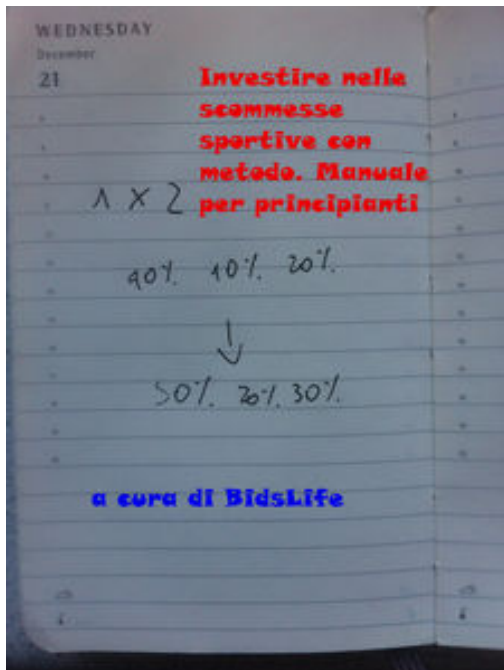 WEDNESDAY
December
21
Investire nelle
scommesse
sportive con
metodo. Manuale
per principianti
1 X 2
40%. 10%. 20%.
50%. 20%. 30%.
a cura di BidsLife